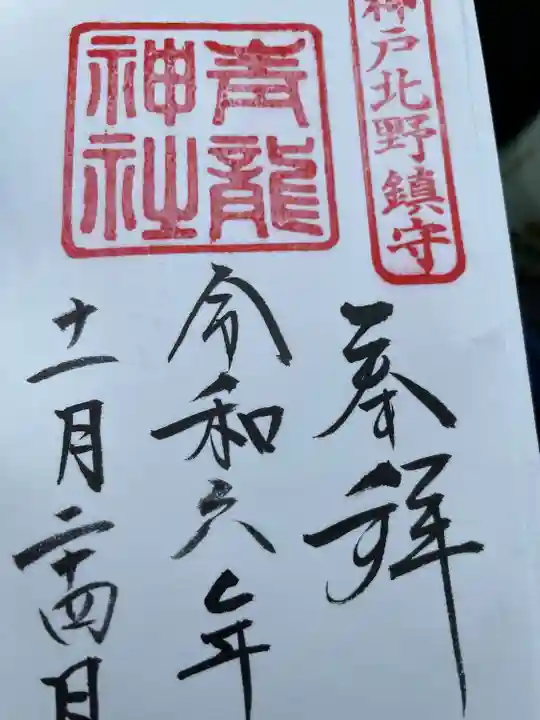 神戸北野鎮守
奉拝
青龍
神社
令和六年
十一月二十四日